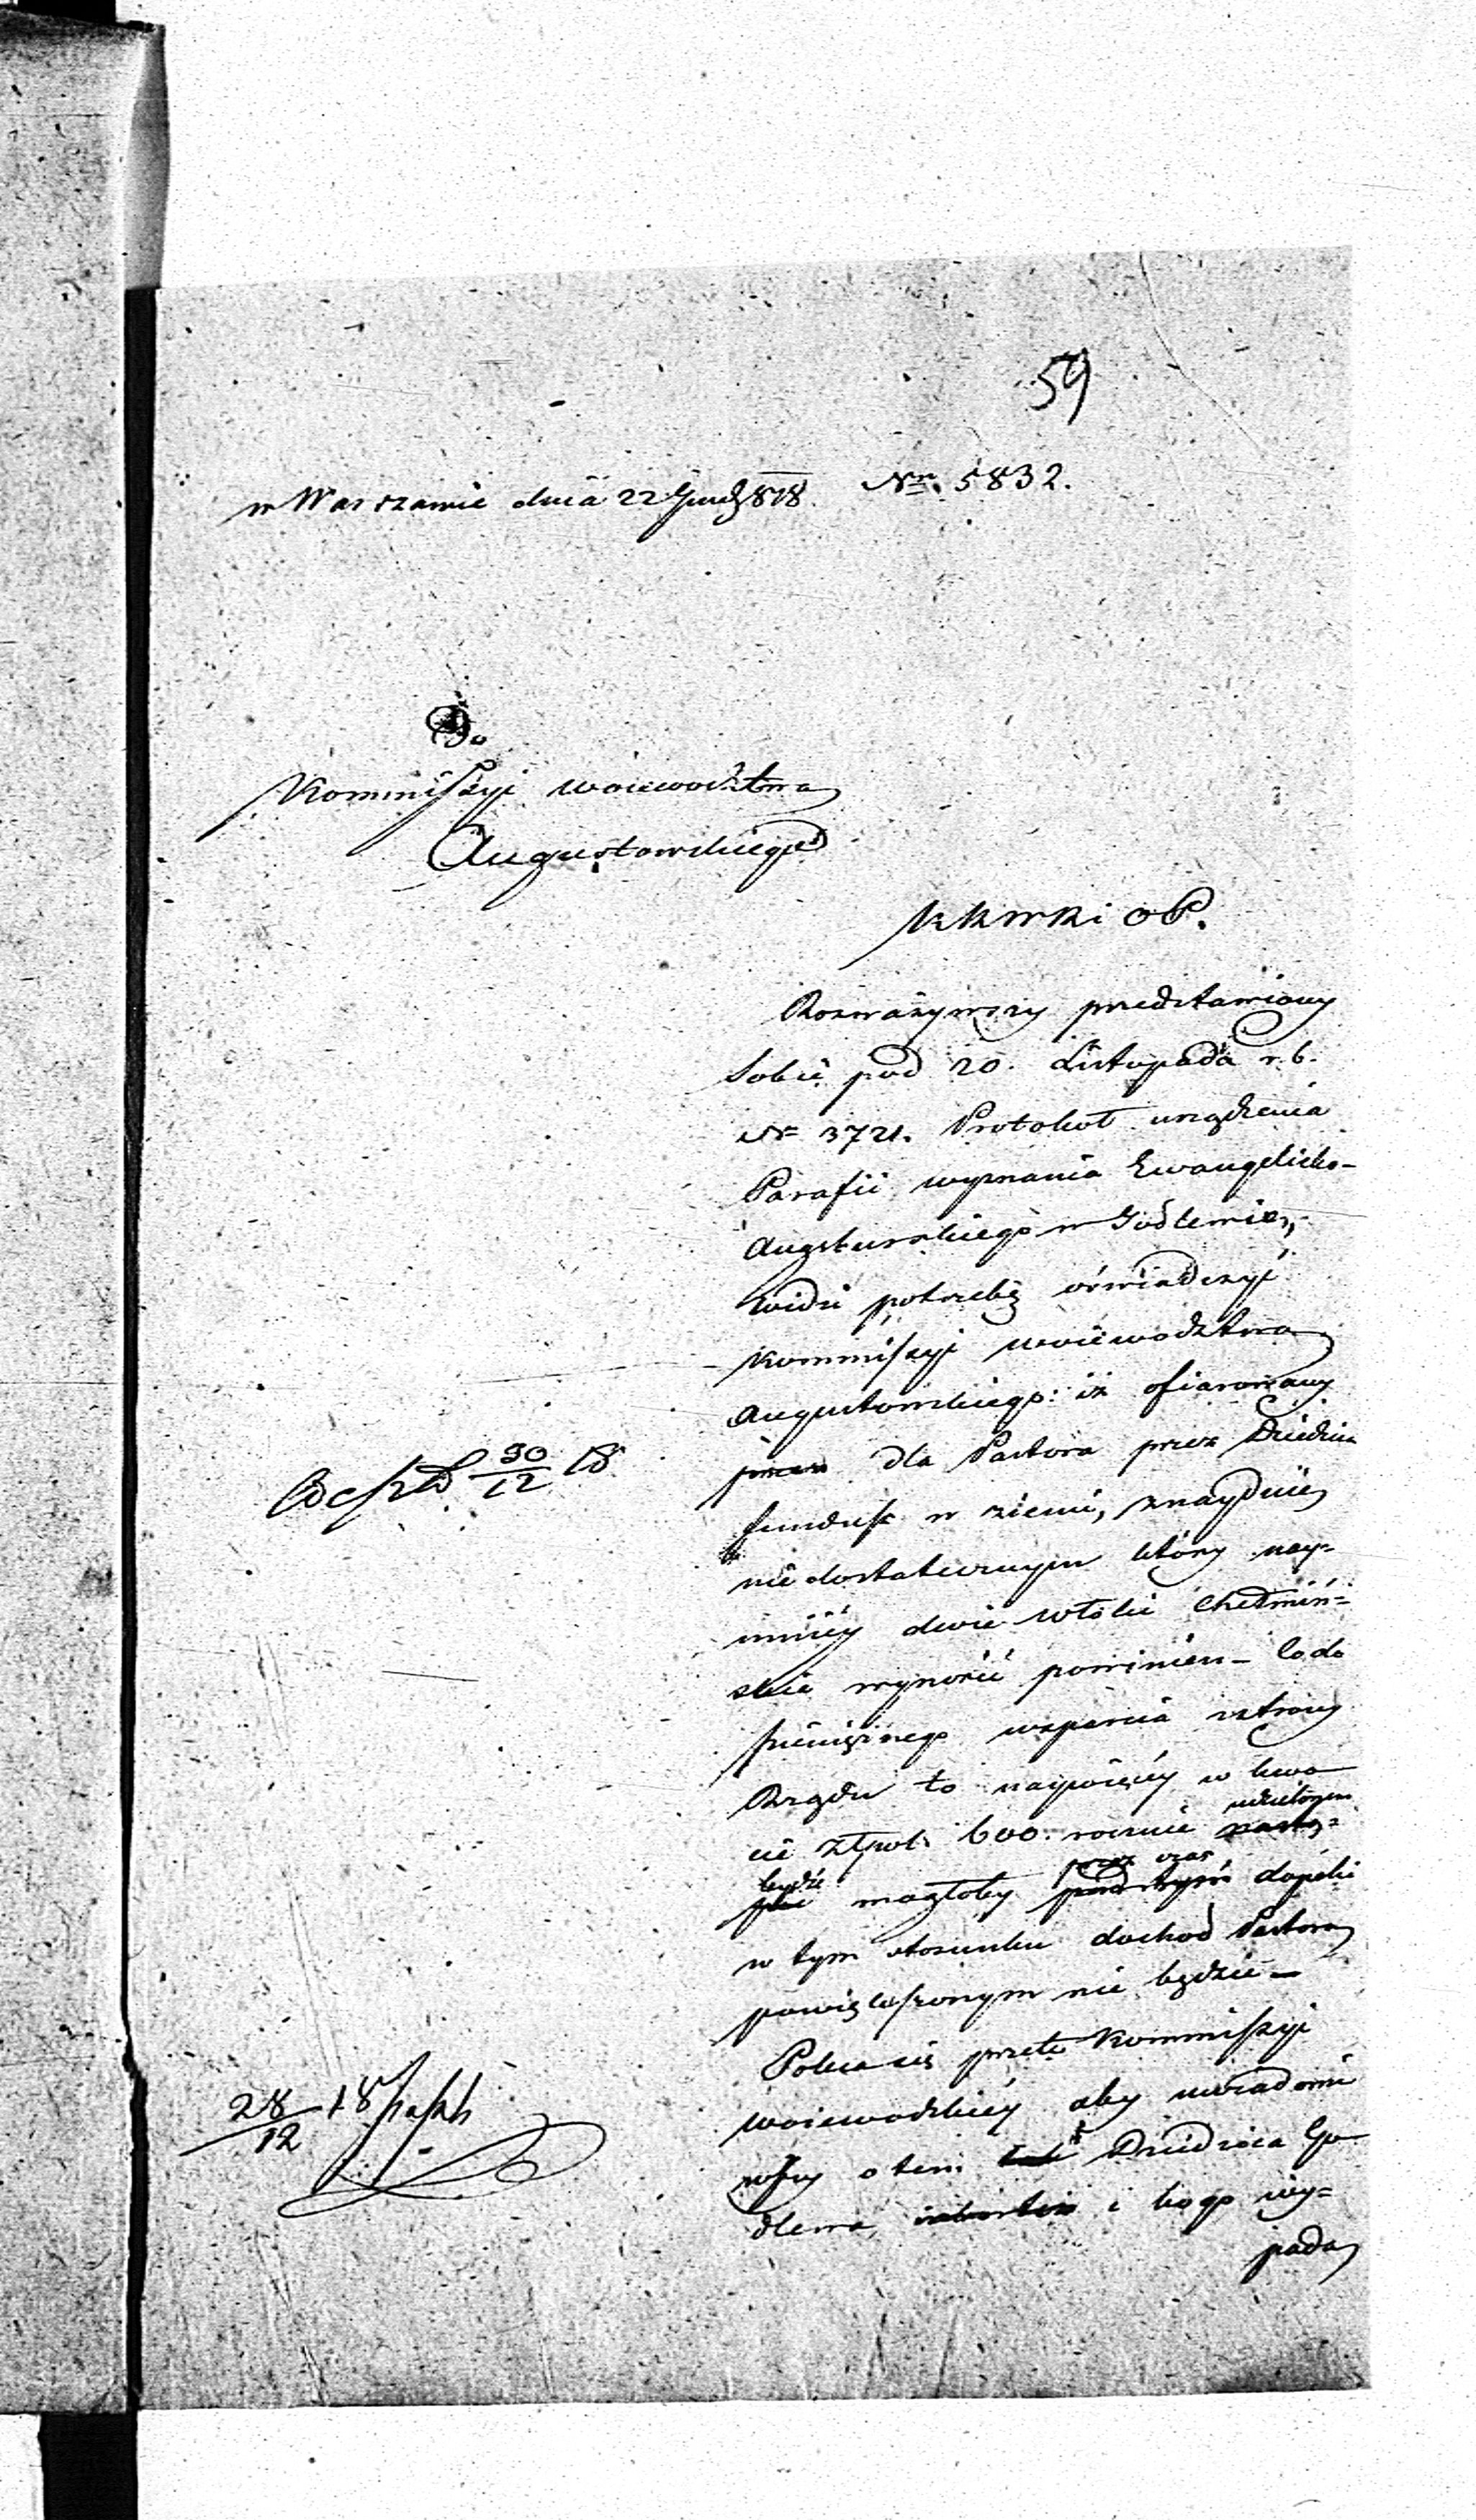 59
w Warszawie dnia 22 Grud 818. Nr. 5832.
Do
Kommissyi woiewodztwa
Augustowskiego
KKWRi OP.
Rozważywszy przedstawiony
Sobie pod 20. Listopada r. b.
Nr 3721. Protokoł urządzenia
Parafii wyznania Ewangelicko-
Augsburskiego w Godlewie,
widzi potrzebę oświadczyć
Kommissyi woiewodztwa
Augustowskiego: iż ofiarowany
dla Pastora przez Dziedzica
fundusz w ziemi, znayduie
niedostatecznym który nay=
mniéy dwie włóki Chełmiń=
skie wynosić powinien – Co do
pieniężnego wsparcia ze strony
Rządu to naywięcéy w kwo
cie Złpol. 600. rocznie udzielonym
bydź mogłoby przez czas dopóki
w tym stosunku dochod Pastora
powiększonym nie będzie –
Poleca się przeto Kommissyi
woiewodzkiéy aby uwiadomi
wszy o tem Dziedzica Go
dlewa, i kogo wy=
pada
Exped 30/12 18
28/12 18